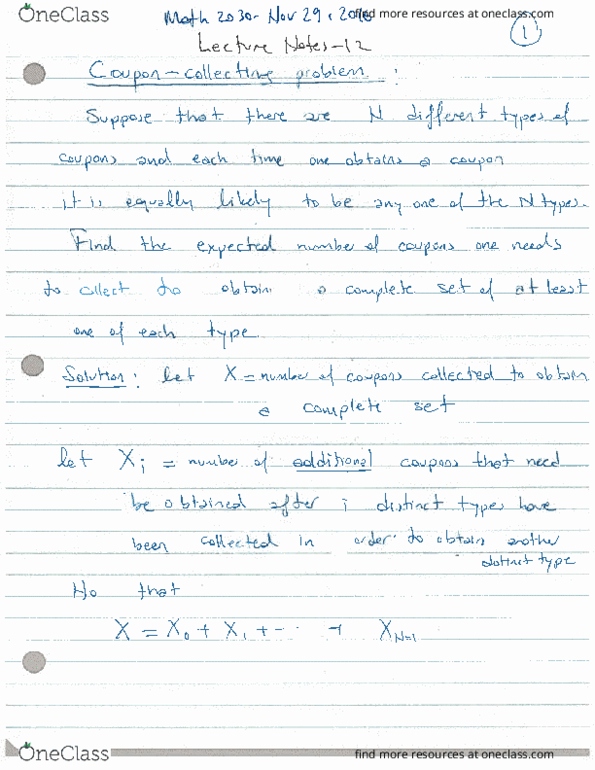 OneClass
find more resources at oneclass.com
Math 2030- Nov 29, 2016
1
Lecture Notes-12
Coupon-collecting problem :
Suppose that there are N different types of
coupons and each time one obtains a coupon
it is equally likely to be any one of the N types.
Find the expected number of coupons one needs
to collect to obtain a complete set of at least
one of each type
Solution: let X = number of coupons collected to obtain
a complete set
let Xi = number of additional coupons that need
be obtained after i distinct types have
been collected in order to obtain another
distinct type
No that
X = X0 + X1 + -- + XN-1
OneClass
find more resources at oneclass.com